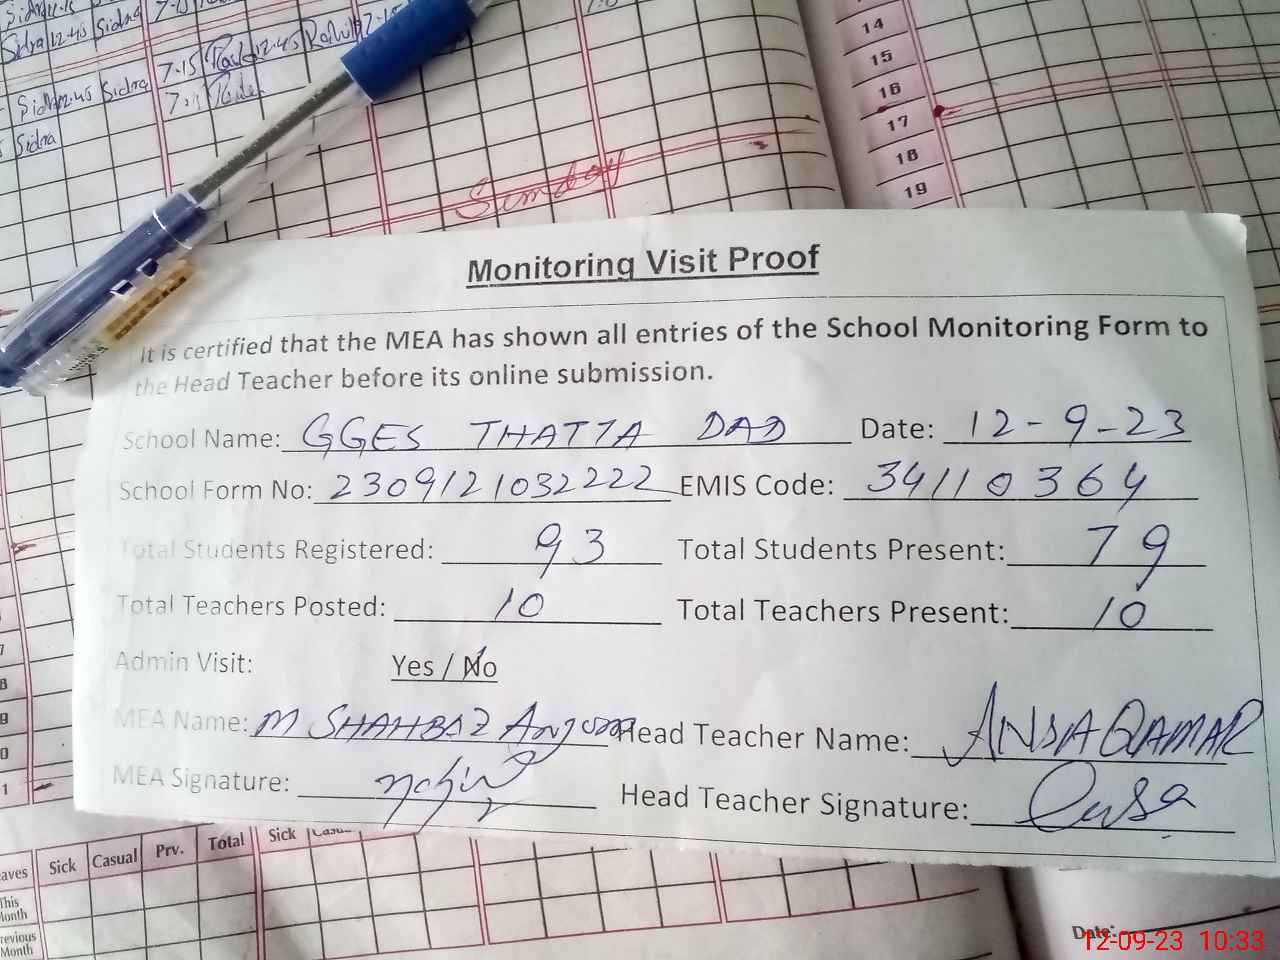 Sidra 12:45 Sidra
7:15 12:45
Sidra 12:45 Sidra
7:15
Sidra
Sunday
14
15
16
17
18
19
Monitoring Visit Proof
It is certified that the MEA has shown all entries of the School Monitoring Form to
the Head Teacher before its online submission.
School Name: GGES THATTA DAD Date: 12-9-23
School Form No: 2309121032222 EMIS Code: 34110364
Total Students Registered: 93 Total Students Present: 79
Total Teachers Posted: 10 Total Teachers Present: 10
Admin Visit: Yes / No
MEA Name: M SHAHBAZ Anjum Head Teacher Name: ANSA QAMAR
MEA Signature: Head Teacher Signature: Ansa
7
8
9
0
1
eaves Sick Casual Prv. Total Sick Casual
This
Month
revious
Month
Date:
12-09-23 10:33